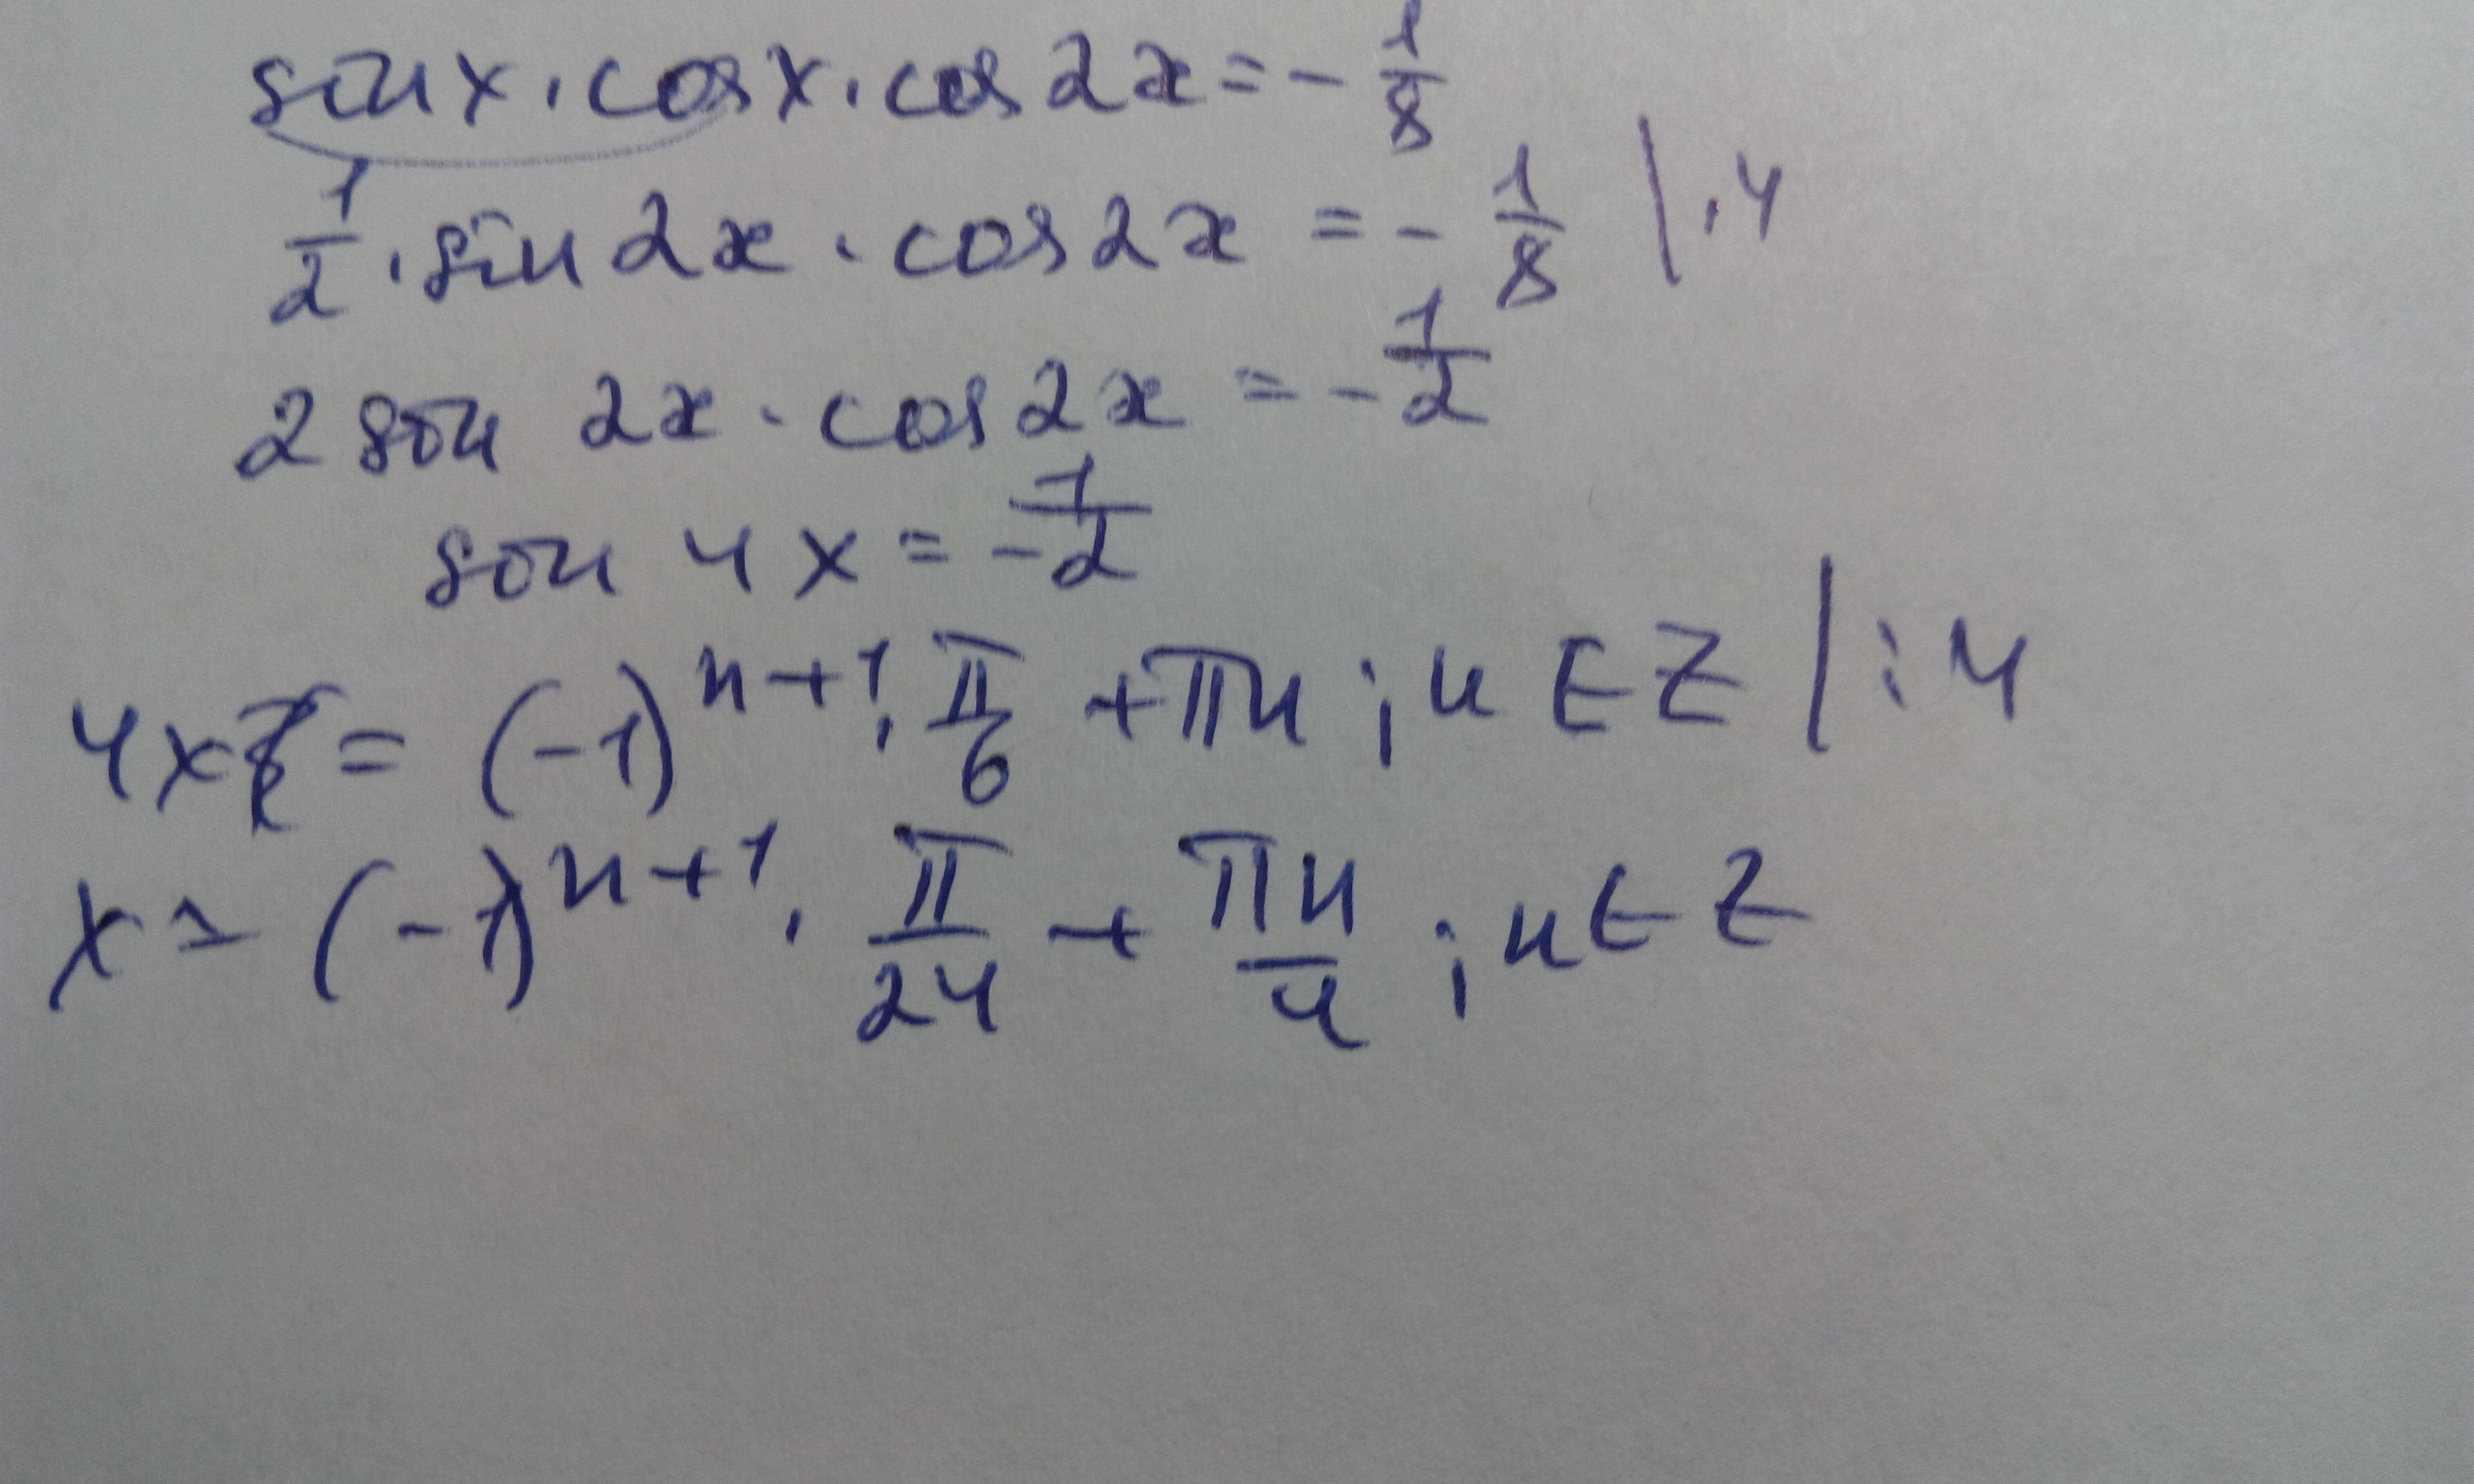 sin x · cos x · cos 2x = - 1/8
1/2 · sin 2x · cos 2x = - 1/8 | · 4
2 sin 2x · cos 2x = - 1/2
sin 4x = - 1/2
4x = (-1)^(n+1) · π/6 + πn ; n ∈ Z | : 4
x = (-1)^(n+1) · π/24 + πn/4 ; n ∈ Z